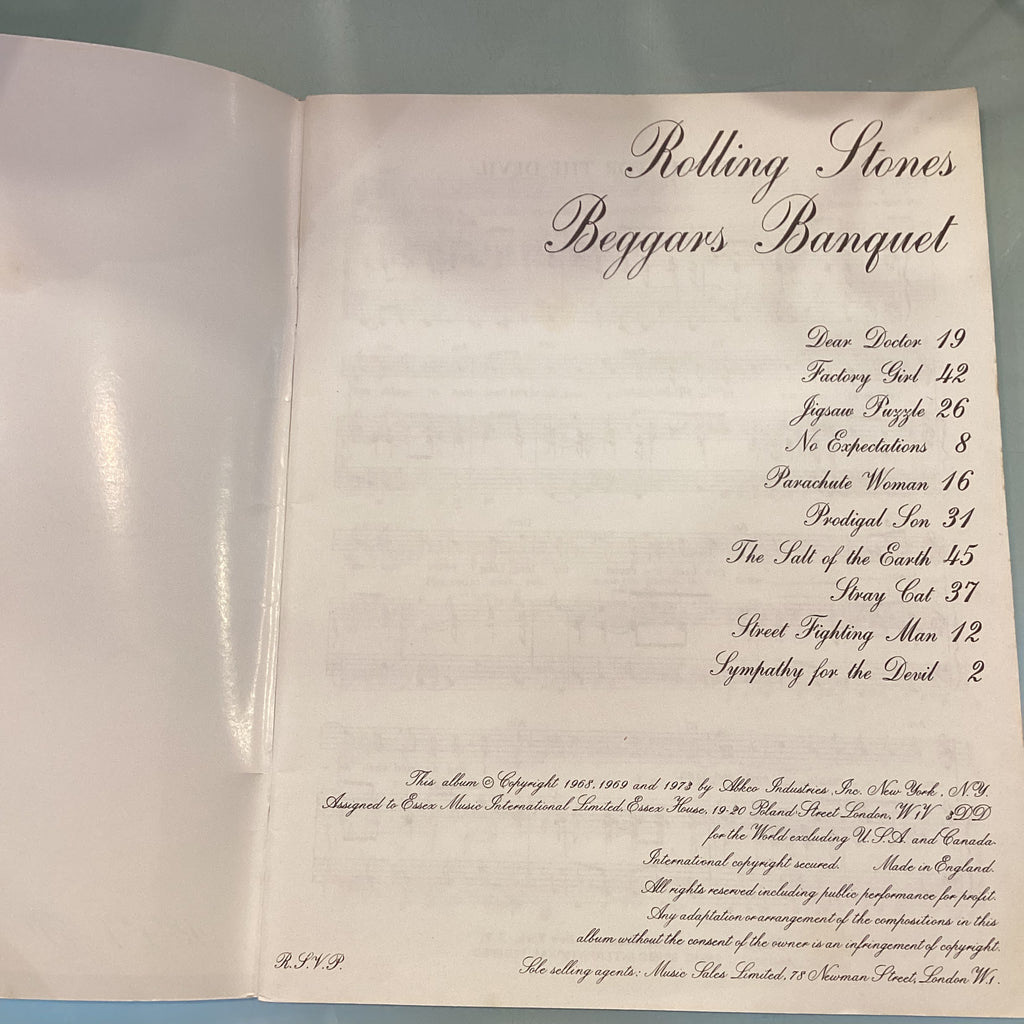 Rolling Stones
Beggars Banquet
Dear Doctor 19
Factory Girl 42
Jigsaw Puzzle 26
No Expectations 8
Parachute Woman 16
Prodigal Son 31
The Salt of the Earth 45
Stray Cat 37
Street Fighting Man 12
Sympathy for the Devil 2
This album © Copyright 1968, 1969 and 1973 by Abkco Industries, Inc. New York, N.Y.
Assigned to Essex Music International Limited, Essex House, 19-20 Poland Street London, W1V 3DD
for the World excluding U.S.A. and Canada.
International copyright secured. Made in England.
All rights reserved including public performance for profit.
Any adaptation or arrangement of the compositions in this
album without the consent of the owner is an infringement of copyright.
R.S.V.P.
Sole selling agents: Music Sales Limited, 78 Newman Street, London W1.